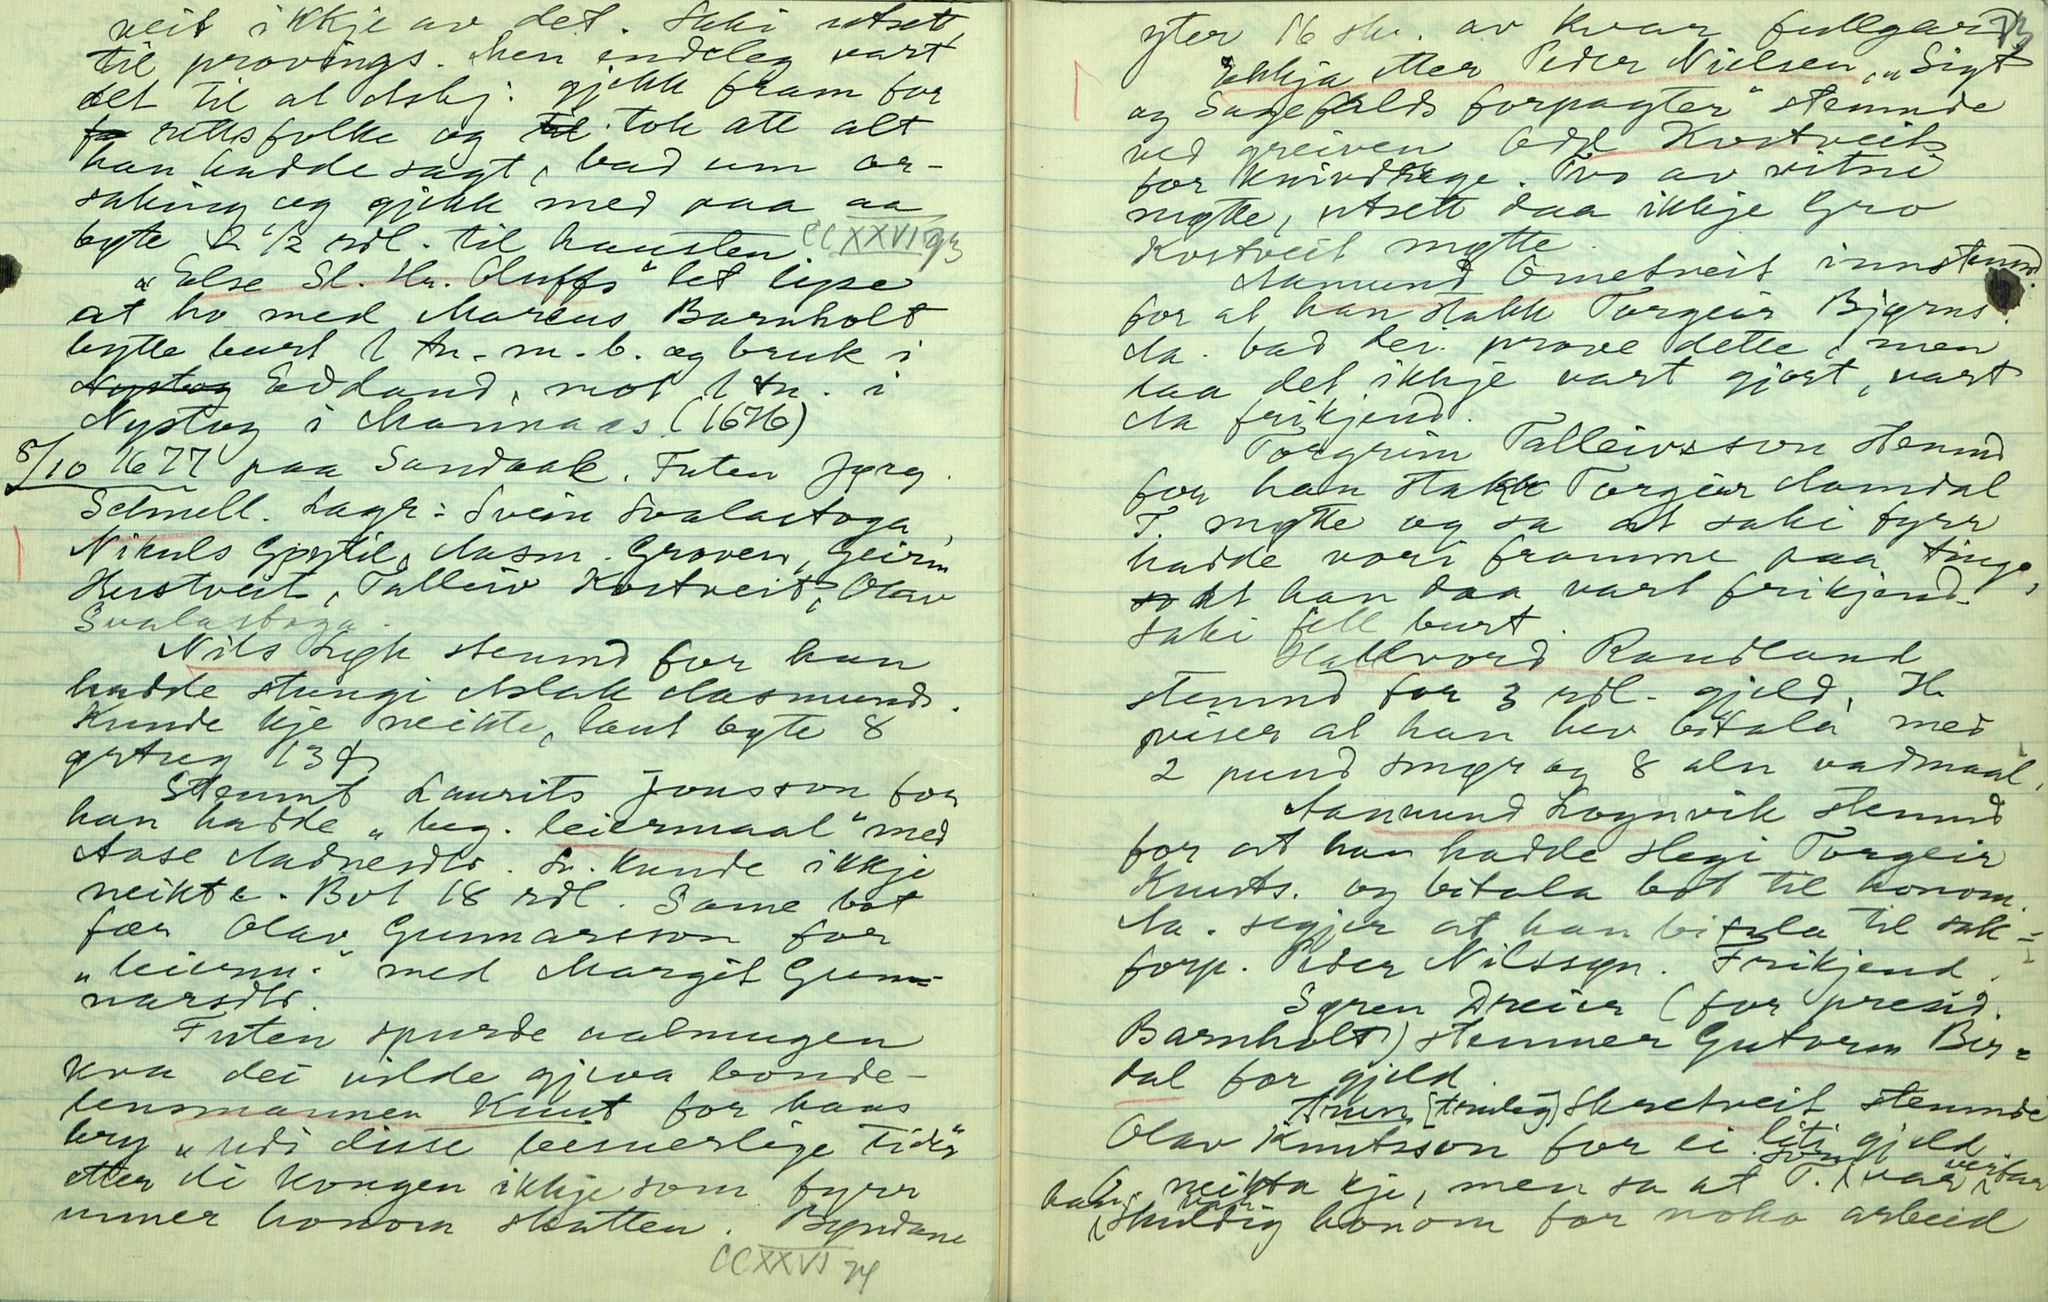 veit ikkje av det. Saki utsett
til provings. Men endeleg vart
det til at Asbj. gjekk fram for
rettsfolke og tok att alt
han hadde sagt, bad um or-
saking og gjekk med paa aa
bøte 2 1/2 rdl. til hausten. CCXXVI 93
"Else Sl. Hr. Oluffs" let lyse
at ho med Marcus Barnholt
bytte burt 1 tn. m. b. og bruk i
Nystog Edland, mot 1 tn. i
Nystog i Mannaas (1676)
8/10 1677 paa Sandaak. Futen Jørg.
Schnell. Lagr: Svein Svalastoga
Nikuls Gøytil, Aasm. Groven, Geirm
Hustveit, Talleiv Kostveit, Olav
Svalastoga.
Nils Løgk stemnd for han
hadde stungi Aslak Aasmunds.
Kunde kje neikte, laut bøte 8
ørtug 13 ₰
Stemnt Laurits Jonsson for
han hadde "beg. leiermaal" med
Aase Aadnesdtr. Lr. kunde ikkje
neikta. Bot 18 rdl. Same bot
fær Olav Gunnarsson for
"leierm." med Margit Gun-
narsdtr.
Futen spurde aalmugen
kva dei vilde gjeva bonde-
lensmannen Knut for hans
bry "udi disse besuerlige tider"
etter di kongen ikkje som fyrr
unner honom skatten. Bøndane
CCXXVI 94
yter 16 sk. av kvar fullgard
Ekkja etter Peder Nielsen, "Sigt
og Sagefalds forpagter" stemnde
ved greiven Odd Kostveit
for kvindsøge. Tvo av vitni
møtte, utsett daa ikkje Gro
Kostveit møtte.
Aamund Ometveit innstemnd.
for at han stakk Torgeir Bjørns.
Aa. bad dei prove dette, men
daa det ikkje vart gjort, vart
Aa frikjend.
Torgrim Talleivsson stemnd
for han stakk Torgeir Aamdal
T. møtte og sa at saki fyrr
hadde vori framme paa tinge,
at han daa vart frikjend.
Saki fell burt.
Hallvord Raudland
stemnd for 3 rdl. gjeld. H.
viser at han hev bitala med
2 pund smør og 8 aln vadmaal.
Aanund Lognvik stemnd
for at han hadde slegi Torgeir
Knuts. og bitala bot til honom.
Aa. segjer at han bitala til sak-
forp. Peder Nilssøn. Frikjend.
Søren Dreier (for presid.
Barnholt) stemner Gutorm Bir-
dal for gjeld.
Arun (truleg) Skretveit stemnde
Olav Knutsson for ei liti gjeld
O. neikta kje, men sa at T. son var verbar
hans skuldig honom for noko arbeid